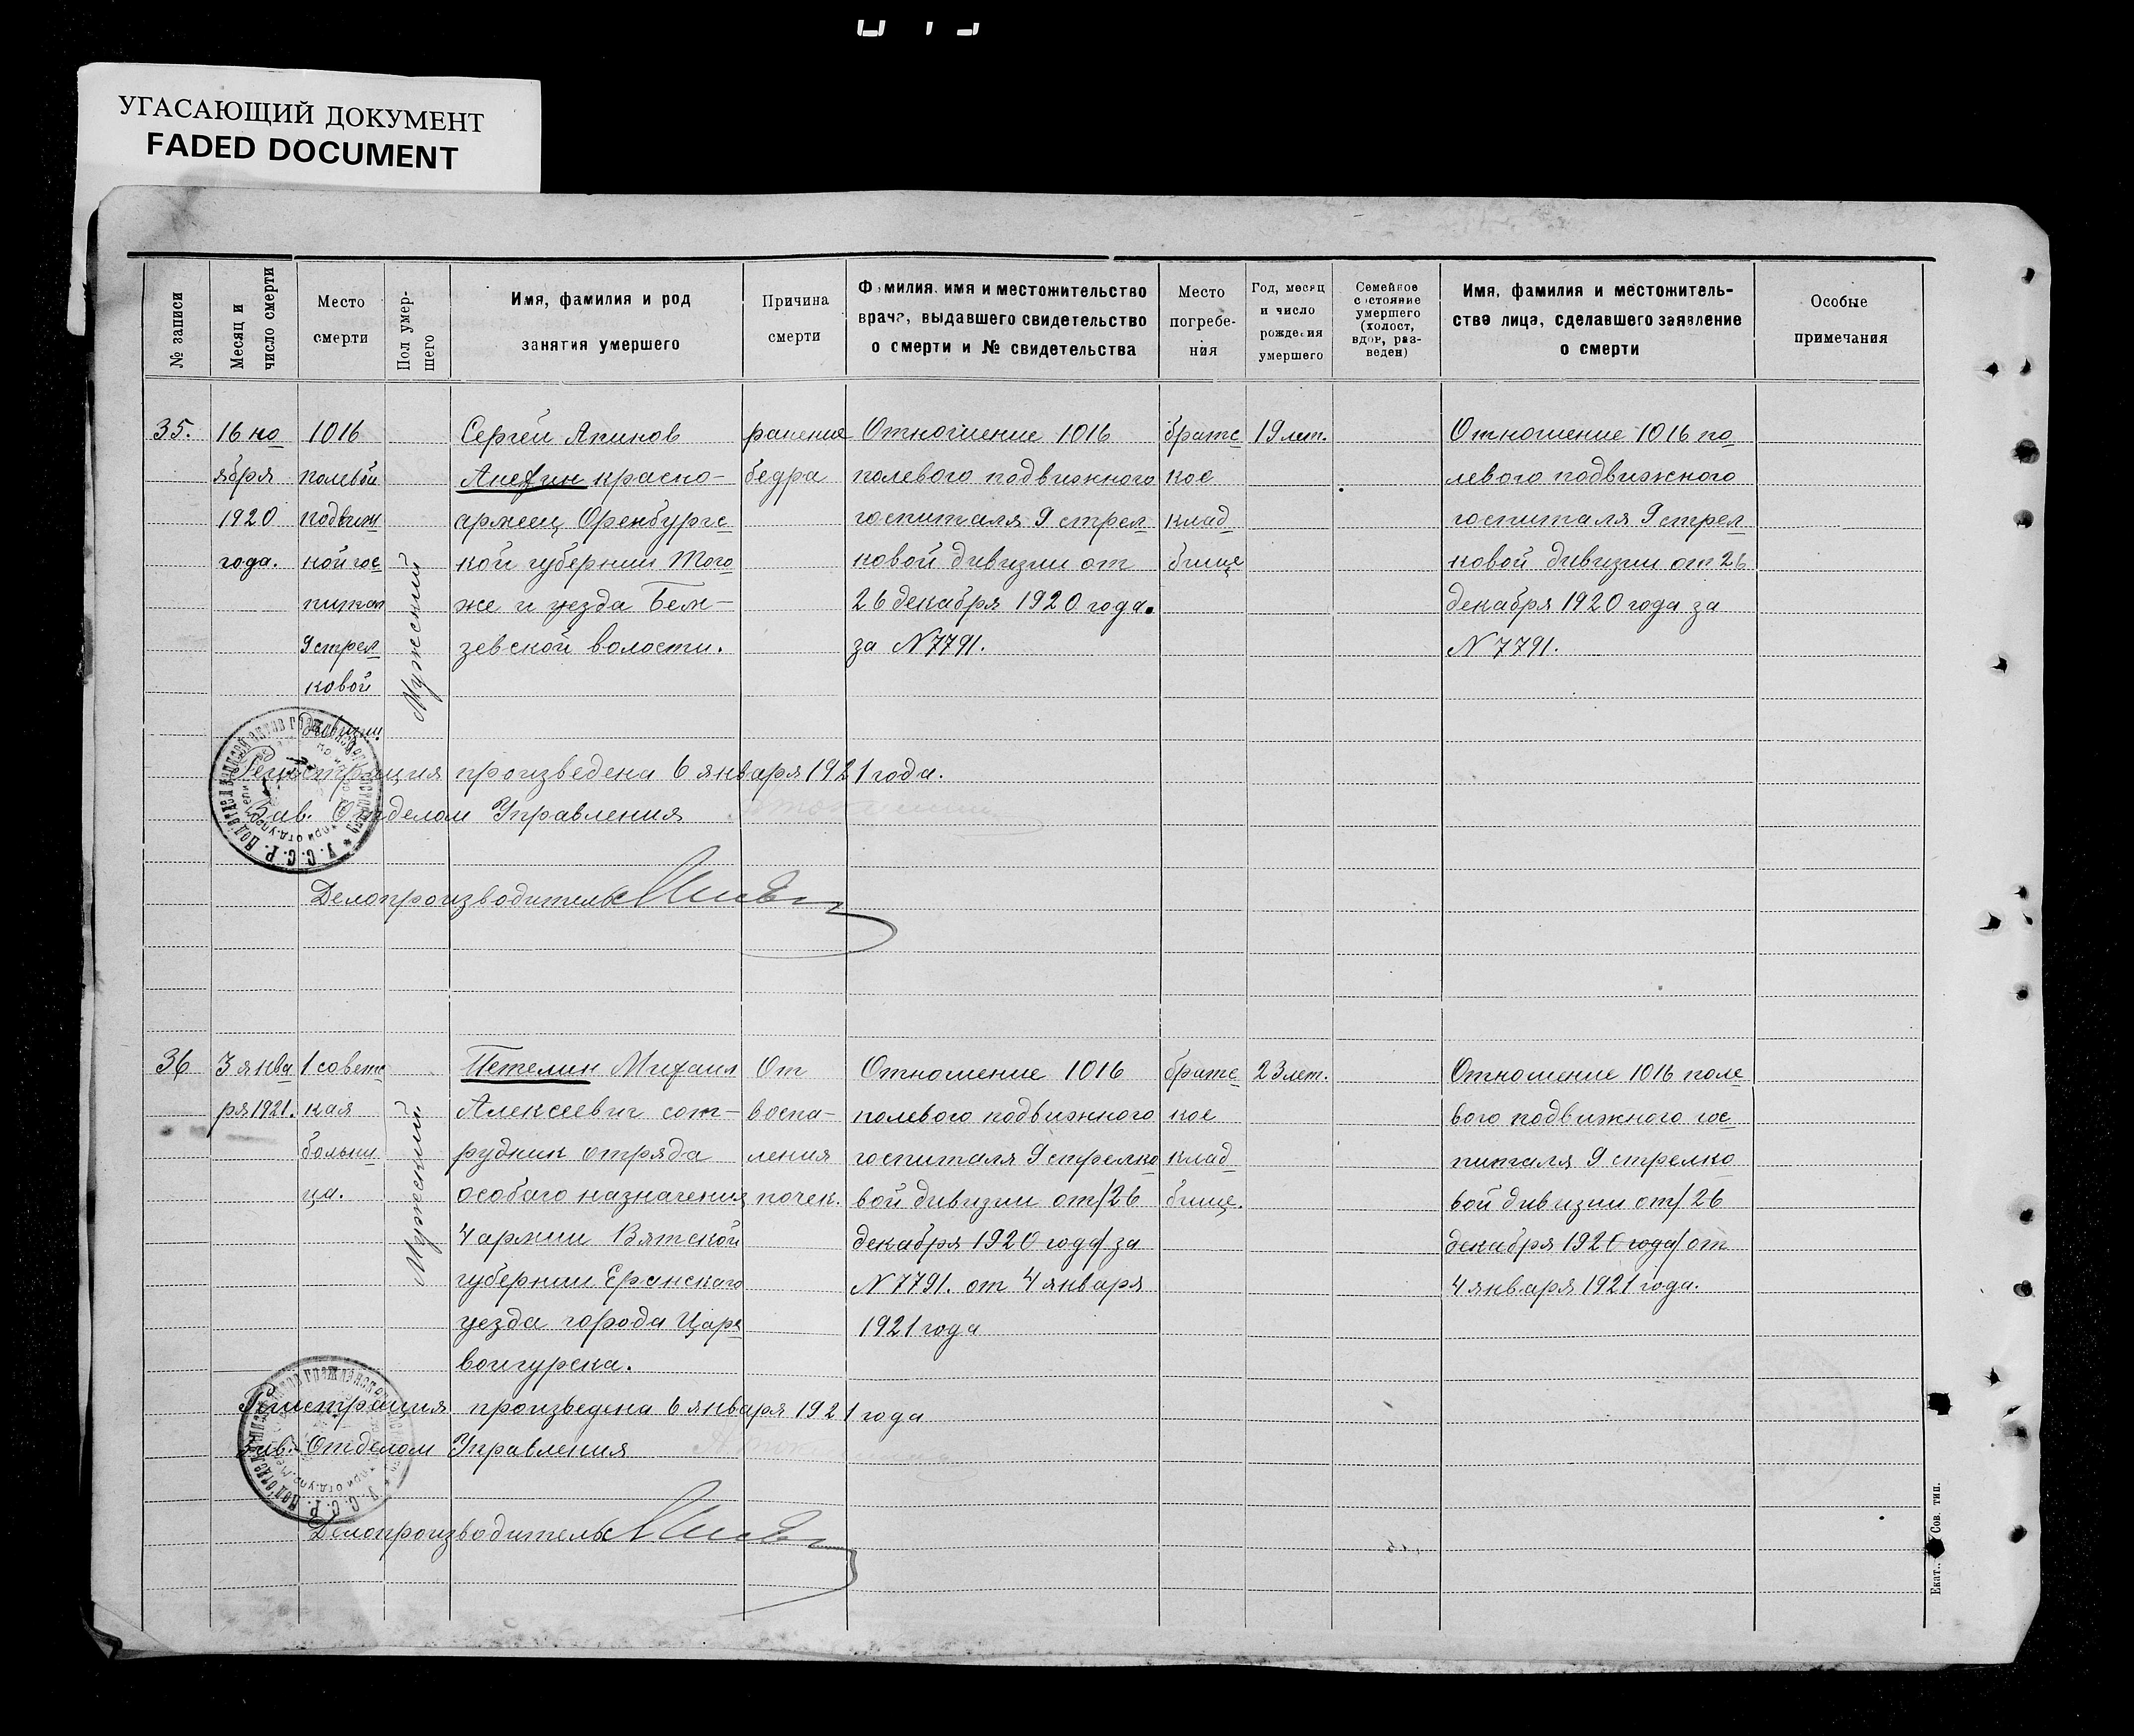 УГАСАЮЩИЙ ДОКУМЕНТ
FADED DOCUMENT
№ записи
Месяц и
число смерти
Место
смерти
Пол умер-
шего
Имя, фамилия и род
занятия умершего
Причина
смерти
Фамилия, имя и местожительство
врача, выдавшего свидетельство
о смерти и № свидетельства
Место
погребе-
ния
Год, месяц
и число
рождения
умершего
Семейное
состояние
умершего
(холост,
вдов, раз-
веден)
Имя, фамилия и местожитель-
ство лица, сделавшего заявление
о смерти
Особые
примечания
35.
16 но
ября
1920
года.
1016
полевой
подвиж
ной гос
питал
9 стрел
ковой
дивизии.
Мужеский
Сергей Акимов
красно-
армеец Оренбургс
кой губернии Того
же и уезда
зевской волости.
ранения
бедра
Отношение 1016
полевого подвижного
госпиталя 9 стрел
ковой дивизии от
26 декабря 1920 года.
за N 7791.
братс
кое
клад
бище
19 лет.
Отношение 1016 по
левого подвижного
госпиталя 9 стрел
ковой дивизии от 26
декабря 1920 года за
N 7791.
Регистрация произведена 6 января 1921 года.
Зав. Отделом Управления
Делопроизводитель
36
3 янва
ря 1921.
1 советс
кая
больни
ца.
Мужеский
Петелин Михаил
Алексеевич сот-
рудник отряда
особаго назначения
4 армии Вятской
губернии Еранскаго
уезда города Царе
вонгурска.
От
воспа-
ления
почек.
Отношение 1016
полевого подвижного
госпиталя 9 стрелко
вой дивизии от/26
декабря 1920 года/за
N 7791. от 4 января
1921 года
братс
кое
клад
бище.
23 лет.
Отношение 1016 поле
вого подвижного гос
питаля 9 стрелко
вой дивизии от/26
декабря 1920 года/от
4 января 1921 года.
Регистрация произведена 6 января 1921 года
Зав. Отделом Управления
Делопроизводитель
Екат. Сов. тип.